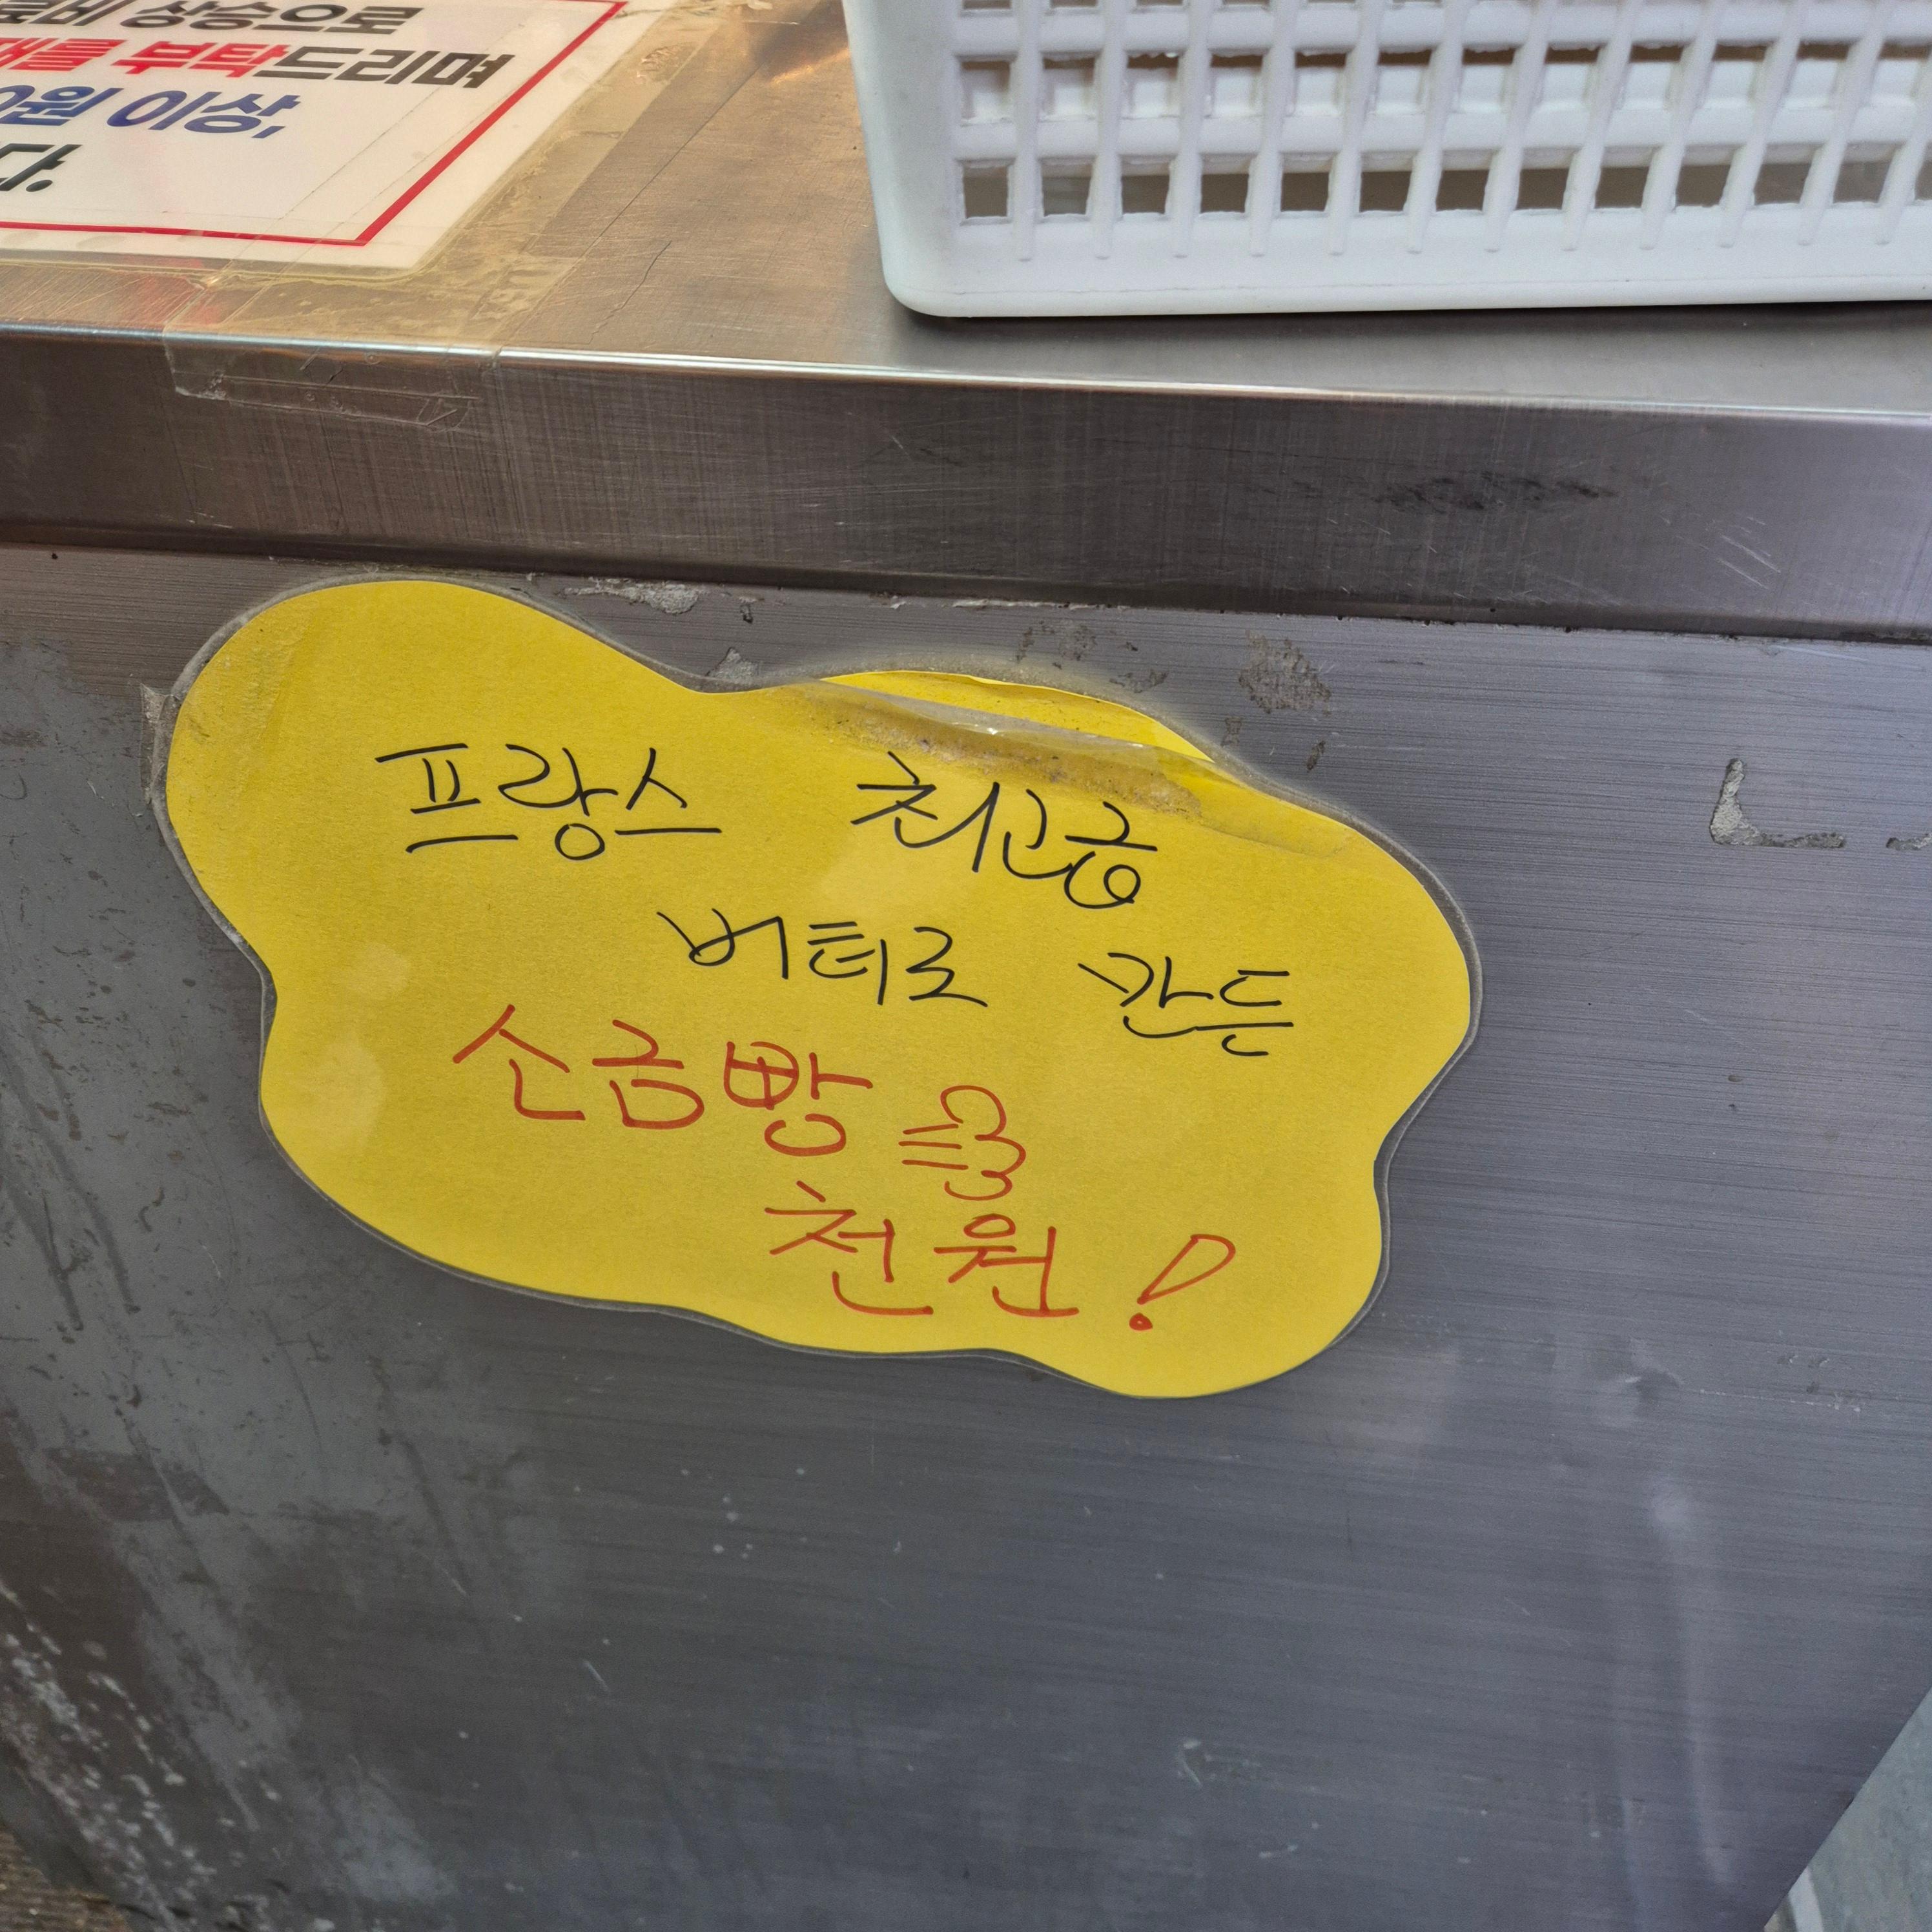 상승으로
부탁드리며
0원 이상,
다.
프랑스 최고급
버터로 만든
소금빵
천원!